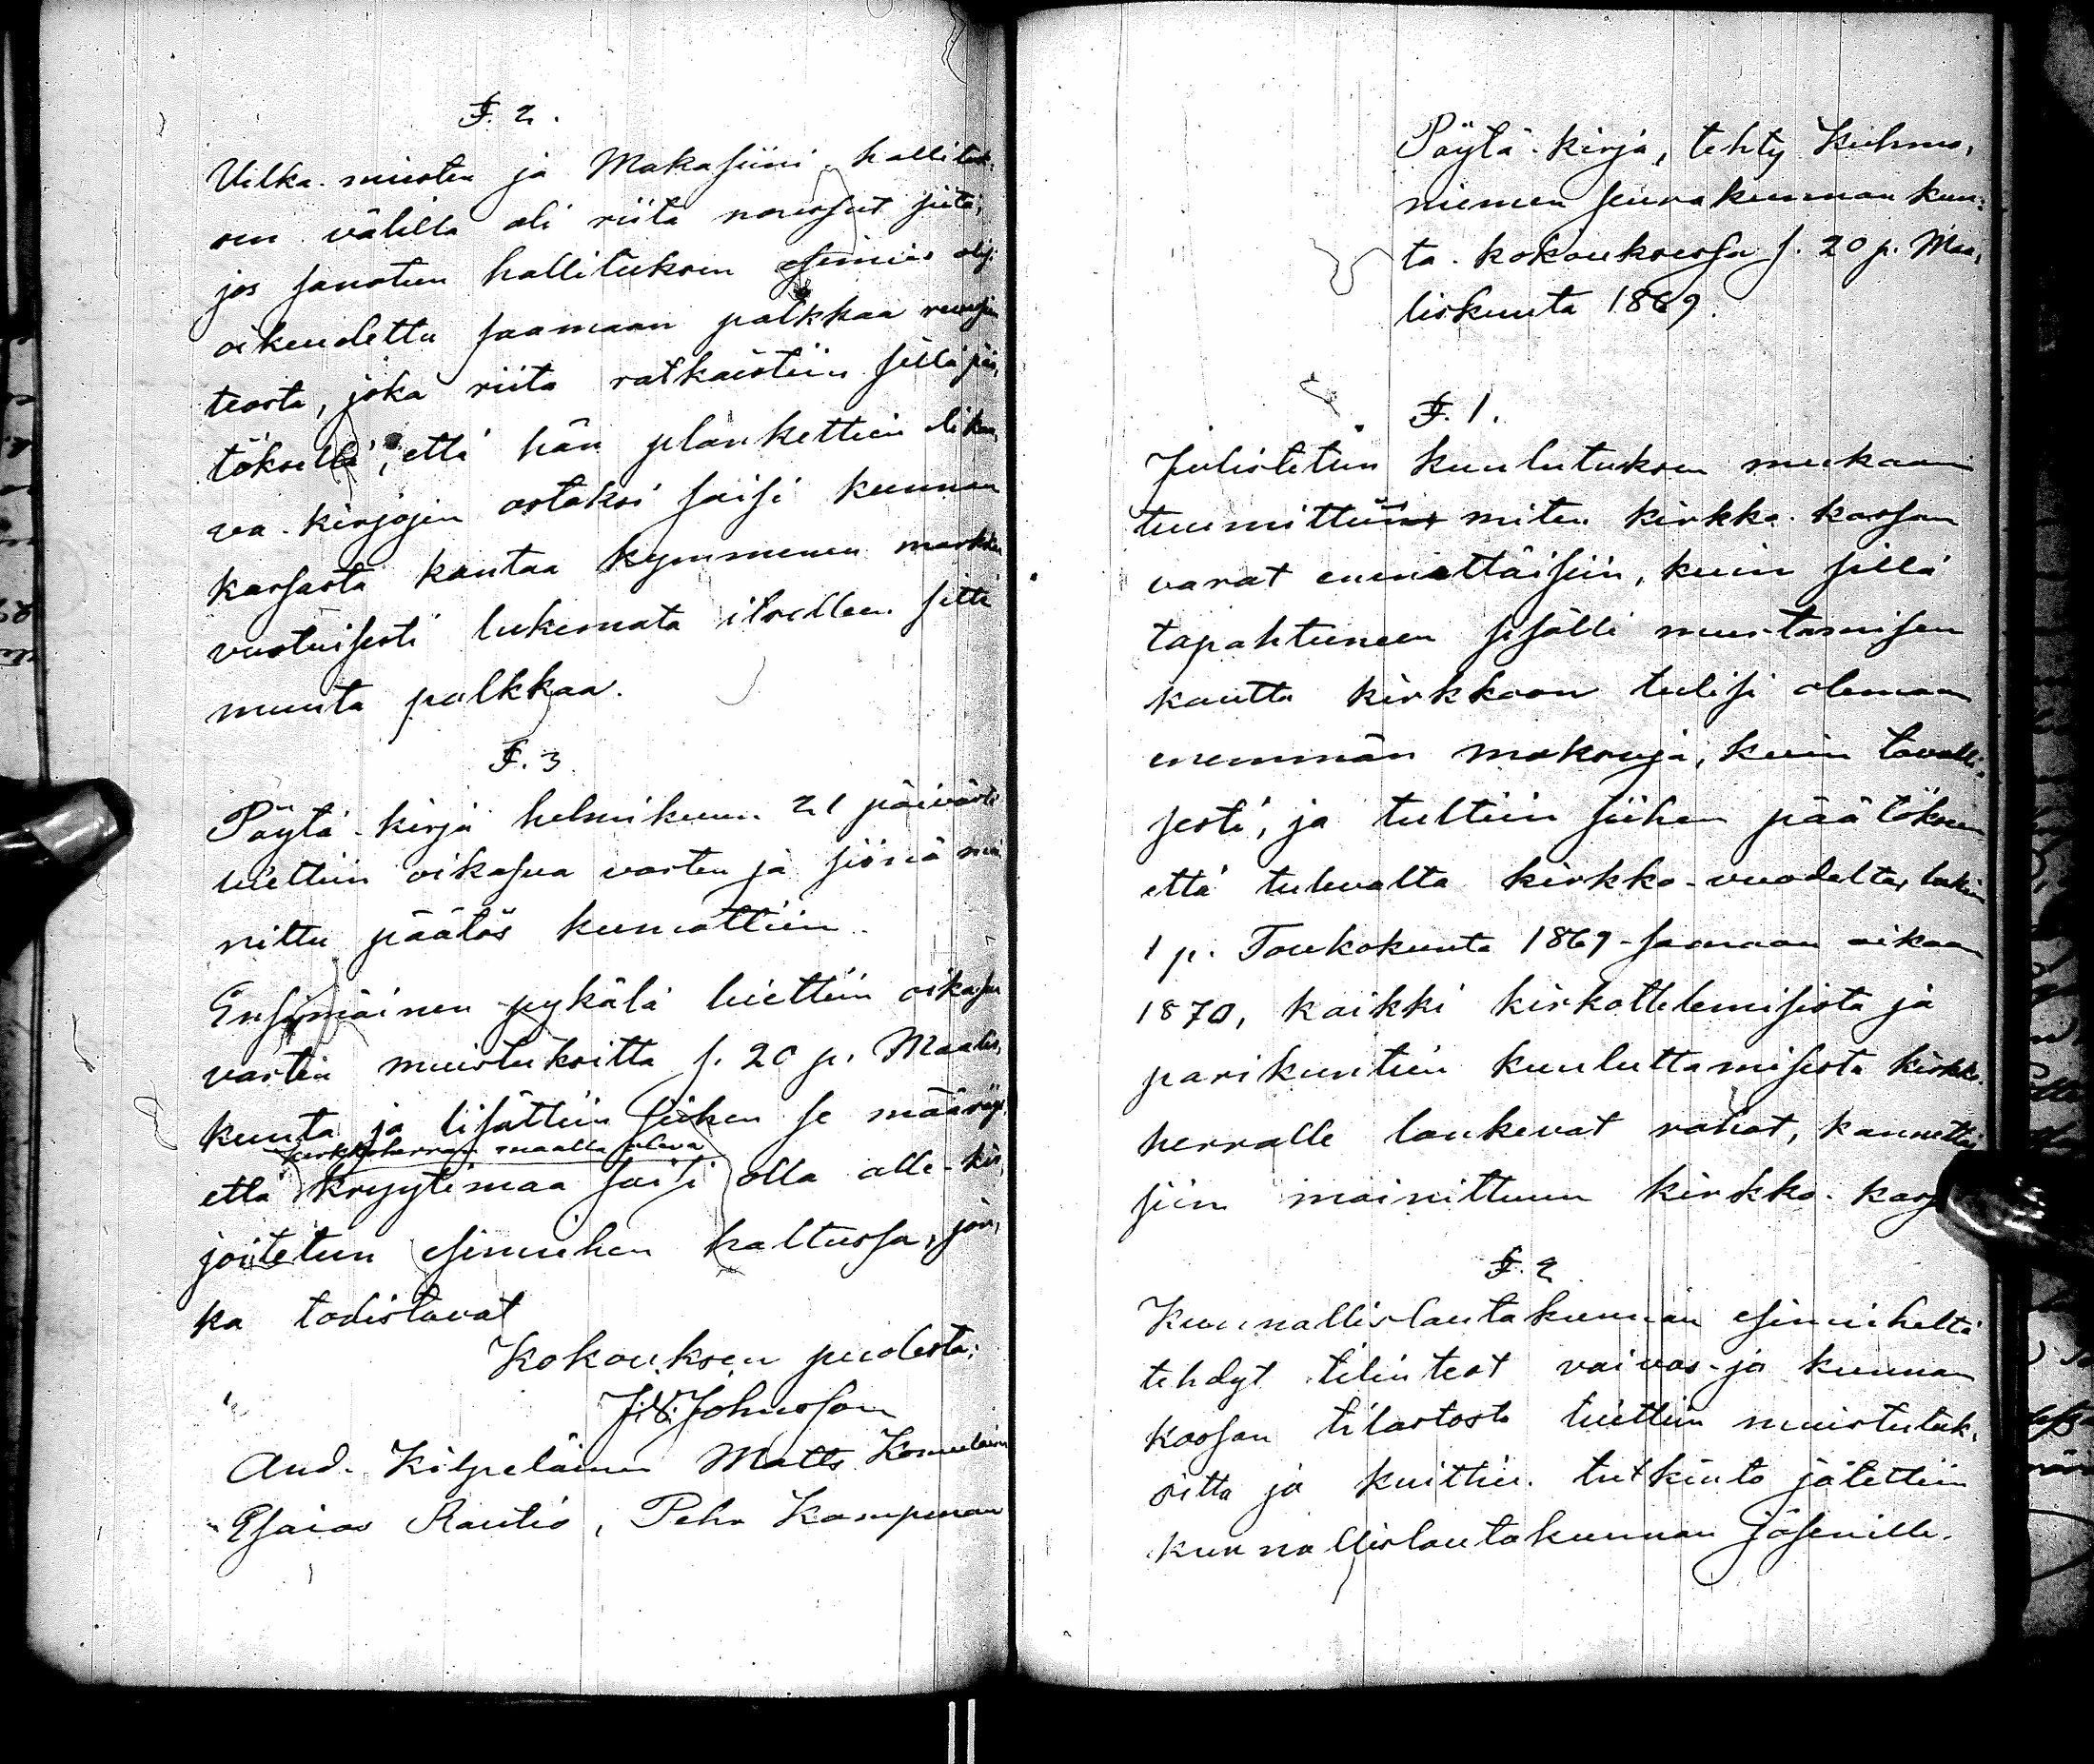 §. 2.
Uilka-miesten ja Makasiini-hallituk-
sen välillä oli riita noussut siitä,
jos sanotun hallituksen esimies olisi
oikeudettu saamaan palkkaa
teosta, joka riita ratkaistiin sillä pää-
töksellä, että hän plankettien
va-kirjojen ostoksi saisi kunnan
kassasta kantaa kymmenen markkaa
vuotuisesti lukemata itselleen sitte
muuta palkkaa.
§. 3
Pöytä-kirja helmikuun 21 päivästä
luettiin oikasua varten ja siinä mai
nittu päätös kumottiin.
Ensimäinen pykälä luettiin oikasua
varten muistuksitta s. 20 p. Maalis-
kuuta ja lisättiin siihen se määräys
kirkkoherran maalla oleva
että kryytimaa saisi olla alle-kir-
joitetun esimiehen haltussa, jon-
ka todistavat
Kokouksen puolesta:
J. V. Johnsson
And. Kilpeläinen Matts Komulainen
Esaias Rautio, Pehr Kampman
Pöytä-kirja, tehty Kuhmo-
niemen seurakunnan kun-
ta-kokouksessa s. 20 p. Maa-
liskuuta 1869.
§. 1.
Julistetun kuulutuksen mukaan
tuumittiin miten kirkko-kassan
varat enenettäisiin, kuin sillä
tapahtuneen sisälli muutamisen
kautta kirkkoon tulisi olemaan
enemmän maksuja, kuin tavalli-
sesti, ja tultiin siihen päätökseen
että tulevalta kirkko-vuodelta, lukien
1 p. Toukokuuta 1869 samaan aikaan
1870, kaikki kirkottelemisista ja
parikuntien kuuluttamisesta kirkko-
herralle lankevat rahat, kannettai-
siin mainittuun kirkko-kassaan
§. 2
Kunnallislautakunnan esimieheltä
tehdyt tilinteot vaivas- ja kunnan
kassan tilastosta luettiin muistutuk-
sitta ja kuittiin tutkinto jätettiin
kunnallislautakunnan jäsenille.